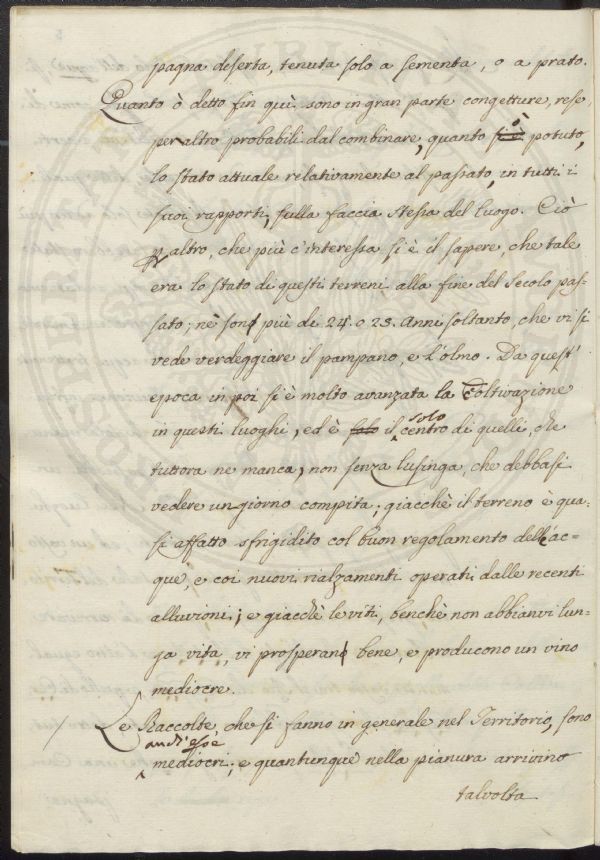 pagna deserta, tenuta solo a sementa, o a prato.
Quanto ò detto fin quì sono in gran parte congetture, rese,
per altro probabili dal combinare, quanto ò potuto,
lo stato attuale relativamente al passato, in tutti i
suoi rapporti, sulla faccia stessa del luogo. Ciò
altro, che più c'interessa si è il sapere, che tale
era lo stato di questi terreni alla fine del Secolo pas-
sato; nè son più di 24. o 25. Anni soltanto, che vi si
vede verdeggiare il pampano, e l'olmo. Da quest'
epoca in poi si è molto avanzata la Coltivazione
in questi luoghi, ed è il solo centro di quelli, che
tuttora ne manca, non senza lusinga, che debbasi
vedere un giorno compita; giacchè il terreno è qua-
si affatto sfrigidito col buon regolamento dell'ac=
que, e coi nuovi rialzamenti operati dalle recenti
alluvioni; e giacchè le viti, benchè non abbianvi lun-
ga vita, vi prosperan bene, e producono un vino
mediocre.
Le Raccolte che si fanno in generale nel Territorio, sono
anch'esse
mediocri; e quantunque nella pianura arrivino
talvolta